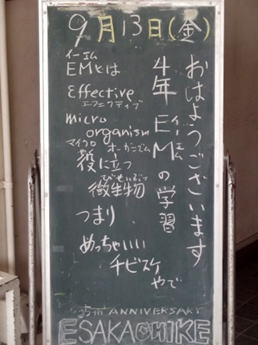 9月13日(金)
おはようございます
4年EMの学習
イーエム
イーエム
EMとは
Effective
エフェクティブ
micro
organism
マイクロ
オーガニズム
役に立つ
びせいぶつ
微生物
つまり
めっちゃいい
チビスケ
やで
ANNIVERSARY
ESAKACHIKE